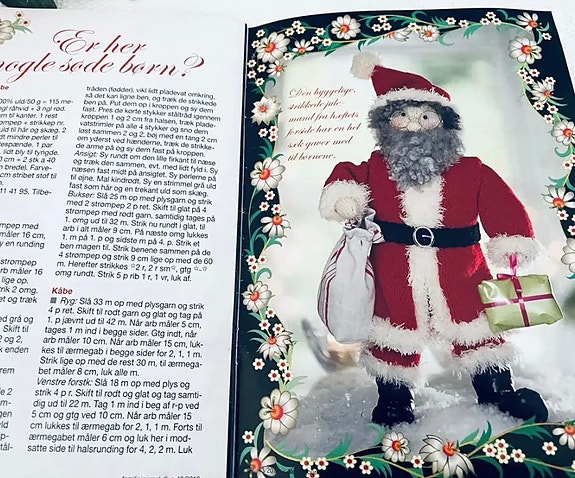 Er her
nogle søde børn?
00% uld/50 g = 115 me-
råhvid + 3 ngl rød.
til kanter. 1 rest
ømpep + strikkep nr.
uld til hår og skæg. 2
dt mindre perler til
espænde. 1 par
lidt bly til tyngde.
0 cm + 2 stk a 40
en bredde). Farve-
cm stribet stof til
11 41 95. Tilbe-
trømpep med
måler 16 cm,
sy en runding
måler 16
trik 2 omg.
et og træk
gråt og
Skift til
, 2, 2 og
k enden
tråden (fødder), vikl lidt pladevat omkring,
så det kan ligne ben, og træk de strikkede
ben på. Put dem op i kroppen og sy dem
fast. Pres de korte stykker ståltråd igennem
kroppen 1 og 2 cm fra halsen, træk plade-
vatstrimler på alle 4 stykker og sno dem
løst sammen 2 og 2, bøj med en tang 2 cm
om yderst ved hænderne, træk de strikke-
de arme på og sy dem fast på kroppen.
Ansigt: Sy rundt om den lille firkant til næse
og træk den sammen, evt. med lidt fyld i. Sy
næsen fast midt på ansigtet. Sy perlerne på
til øjne. Mal kindrødt. Sy en strimmel grå uld
fast som hår og en trekant uld som skæg.
Bukser: Slå 25 m op med plysgarn og strik
med 2 strømpep 2 p ret. Skift til glat på 4
strømpep med rødt garn, samtidig tages på
1. omg ud til 32 m. Strik nu rundt i glat, til
arb i alt måler 9 cm. På næste omg lukkes
1. m på 1. p og sidste m på 4. p. Strik et
ben magen til. Strik benene sammen på de
4 strømpep og strik 9 cm lige op med de 60
m. Herefter strikkes ☆2 r, 2 r sm☆, gtg ☆-☆
omg rundt. Strik 5 p rib 1 r, 1 vr, luk af.
Kåbe
■ Ryg: Slå 33 m op med plysgarn og strik
4 p ret. Skift til rødt garn og glat og tag på
1. p jævnt ud til 42 m. Når arb måler 5 cm,
tages 1 m ind i begge sider. Gtg indt, når
arb måler 10 cm. Når arb måler 15 cm, luk-
kes til ærmegab i begge sider for 2, 1, 1 m.
Strik lige op med de rest 30 m, til ærmega-
bet måler 8 cm, luk alle m.
Venstre forstk: Slå 18 m op med plys og
strik 4 p r. Skift til rødt og glat og tag samti-
dig ud til 22 m. Tag 1 m ind i beg af r-p ved
5 cm og gtg ved 10 cm. Når arb måler 15
cm lukkes til ærmegab for 2, 1, 1 m. Forts til
ærmegabet måler 6 cm og luk her i mod-
satte side til halsrunding for 4, 2, 2 m. Luk
Den hyggelige,
strikkede jule-
mand fra hæftets
forside har en hel
sæk gaver med
til børnene.